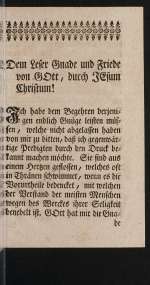 Dem Leser Gnade und Friede
von GOtt, durch JEsum
Christum!
Ich habe dem Begehren derjeni-
gen endlich Gnüge leisten müs-
sen, welche nicht abgelassen haben
von mir zu bitten, daß ich gegenwär-
tige Predigten durch den Druck be-
kannt machen möchte. Sie sind aus
einem Hertzen geflossen, welches oft
in Thränen schwimmet, wenn es die
Vorurtheile bedencket, mit welchen
der Verstand der meisten Menschen
wegen des Werckes ihrer Seligkeit
benebelt ist. GOtt hat mir die Gna-
de